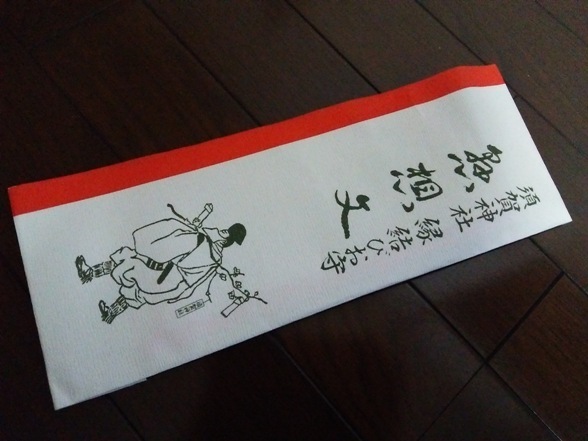 懸想文
須賀神社 縁結びお守